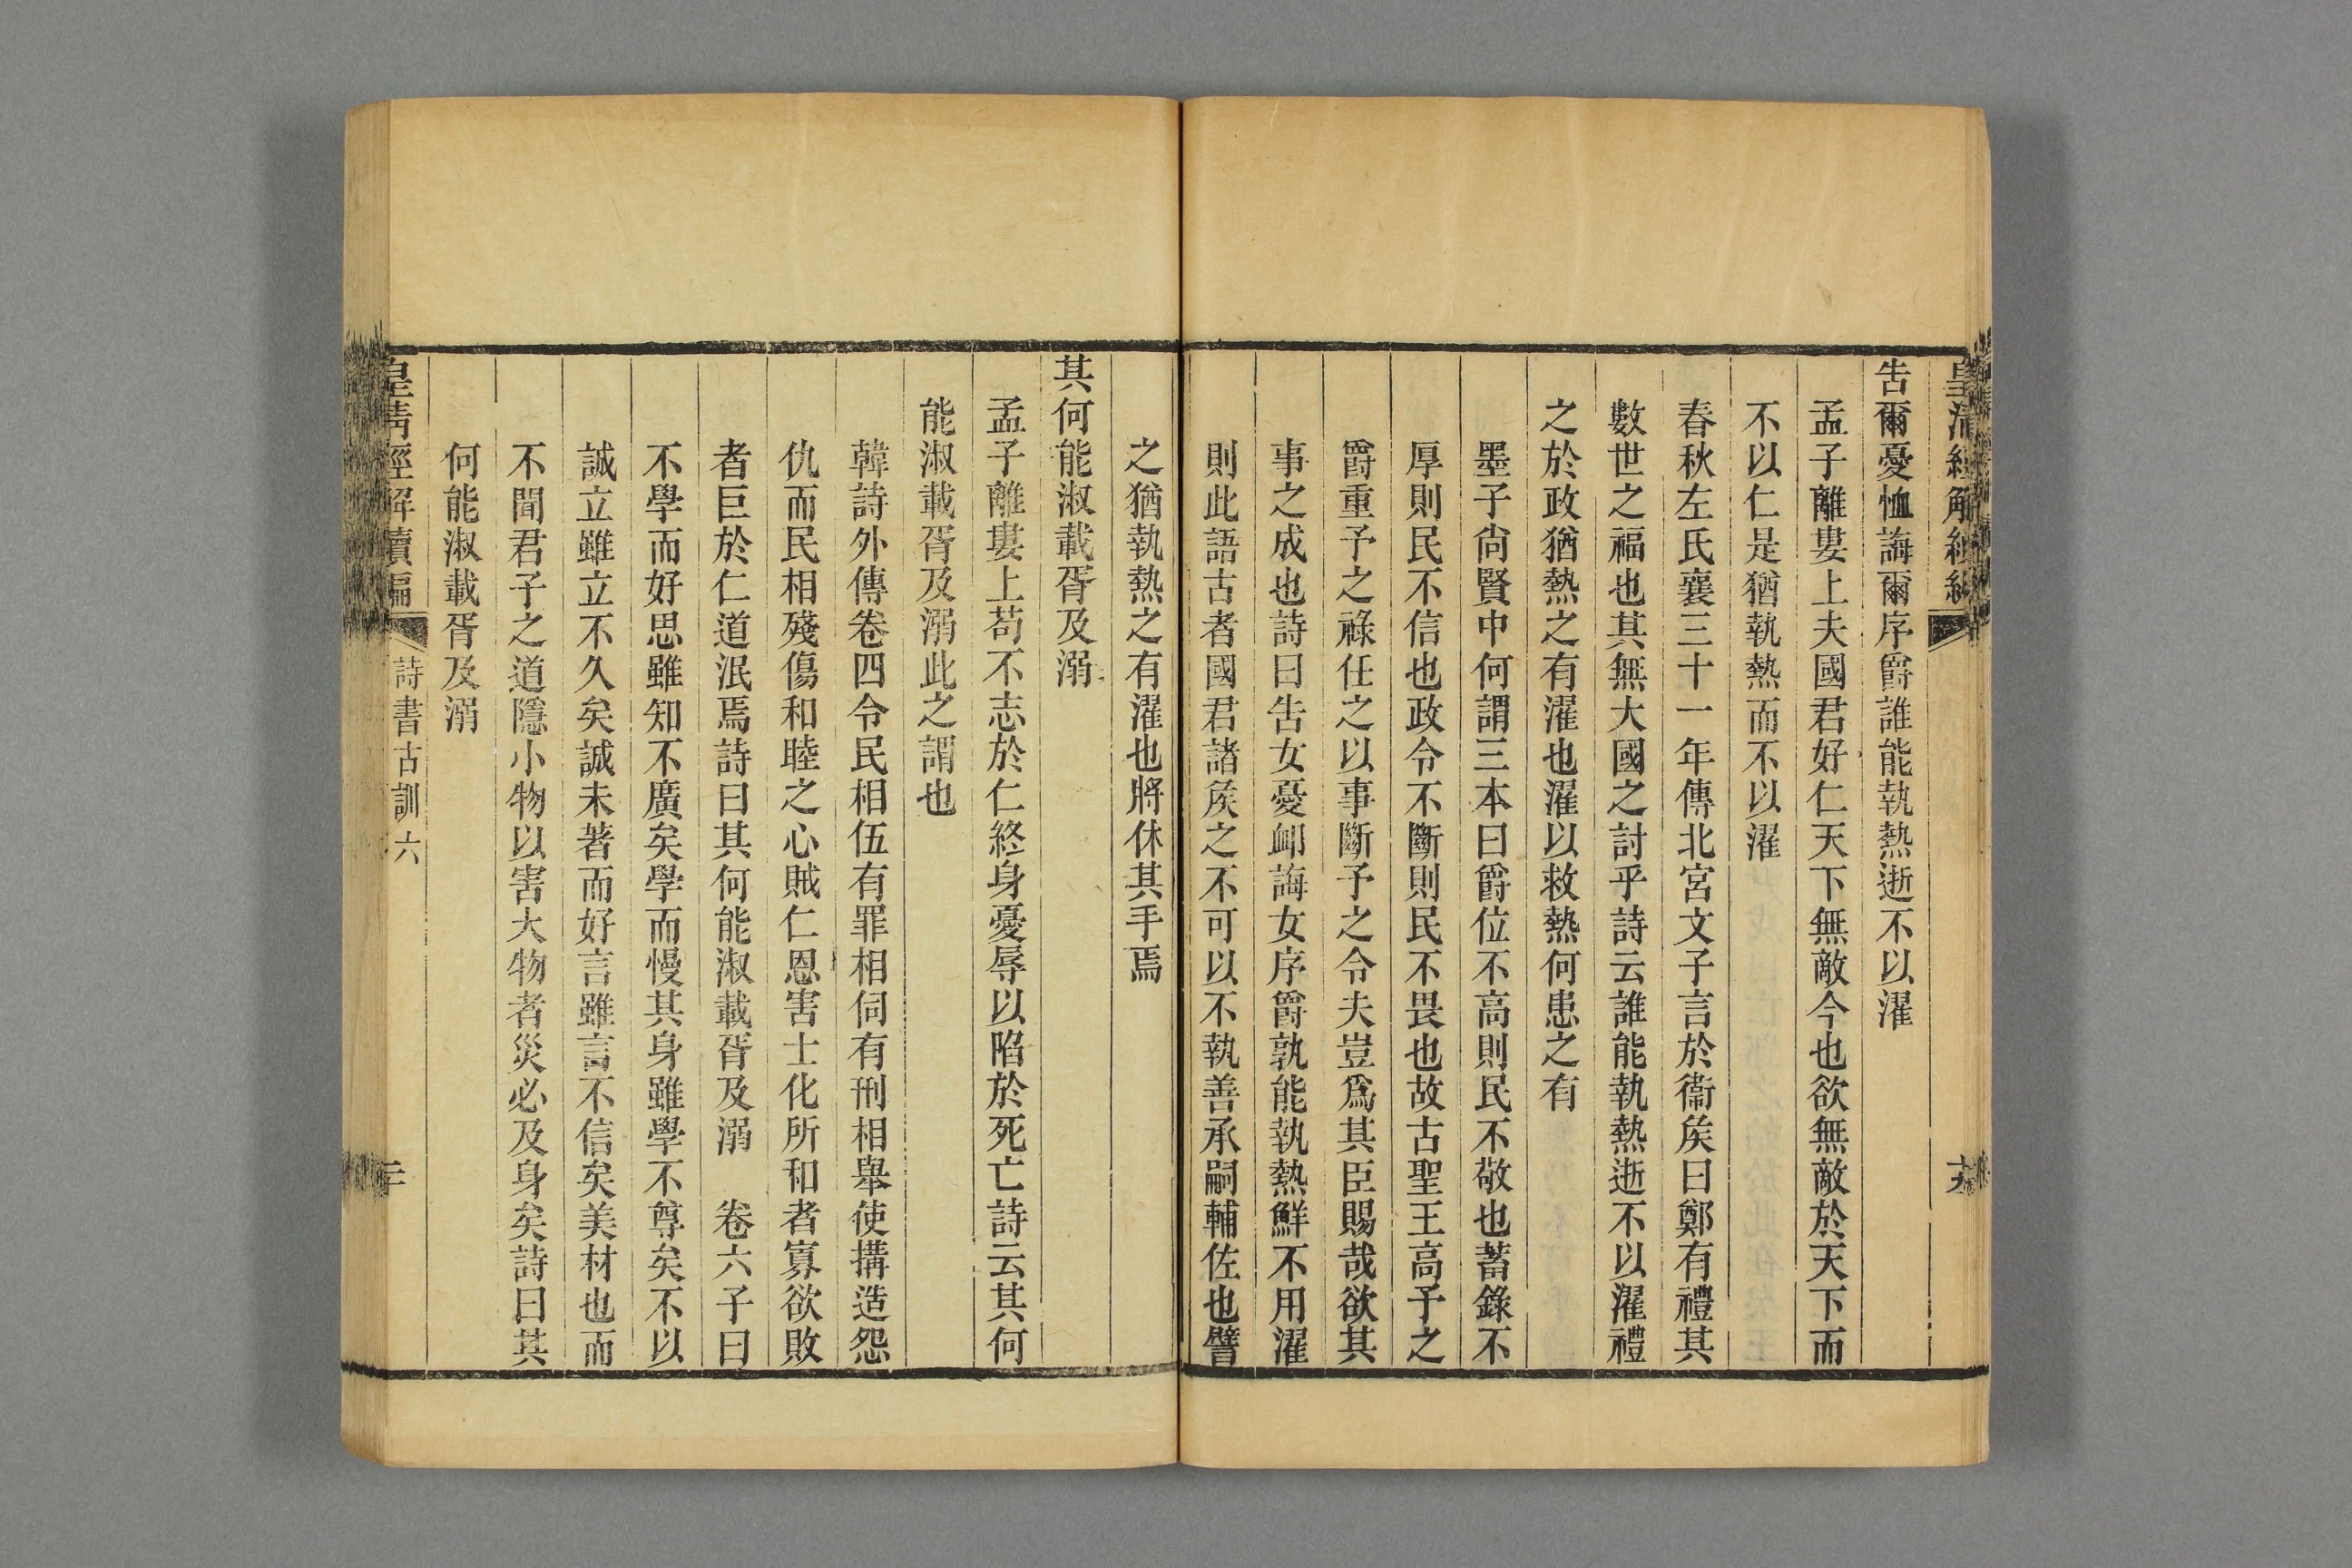 告爾憂恤誨爾序爵誰能執熱逝不以濯
孟子離婁上夫國君好仁天下無敵今也欲無敵於天下而
不以仁是猶執熱而不以濯
春秋左氏襄三十一年傳北宮文子言於衞矦曰鄭有禮其
數世之福也其無大國之討乎詩云誰能執熱逝不以濯禮
之於政猶熱之有濯也濯以救熱何患之有
墨子尙賢中何謂三本曰爵位不高則民不敬也蓄錄不
厚則民不信也政令不斷則民不畏也故古聖王高予之
爵重予之祿任之以事斷予之令夫豈爲其臣賜哉欲其
事之成也詩曰告女憂卹誨女序爵孰能執熱鮮不用濯
則此語古者國君諸矦之不可以不執善承嗣輔佐也譬
之猶執熱之有濯也將休其手焉
其何能淑載胥及溺
孟子離婁上苟不志於仁終身憂辱以陷於死亡詩云其何
能淑載胥及溺此之謂也
韓詩外傳卷四令民相伍有罪相伺有刑相舉使搆造怨
仇而民相殘傷和睦之心賊仁恩害士化所和者寡欲敗
者巨於仁道泯焉詩曰其何能淑載胥及溺　卷六子曰
不學而好思雖知不廣矣學而慢其身雖學不尊矣不以
誠立雖立不久矣誠未著而好言雖言不信矣美材也而
不聞君子之道隱小物以害大物者災必及身矣詩曰其
何能淑載胥及溺
皇淸經解續編　詩書古訓六